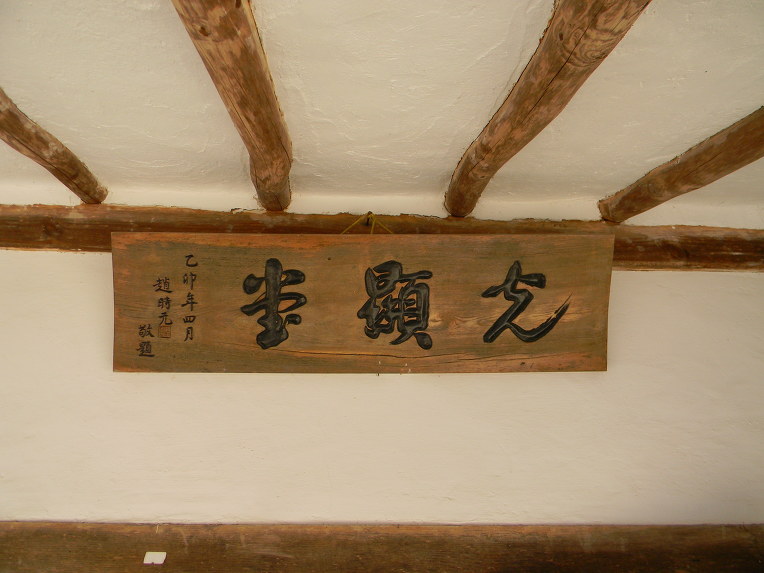 光顯堂
乙卯年四月
趙時元
敬題